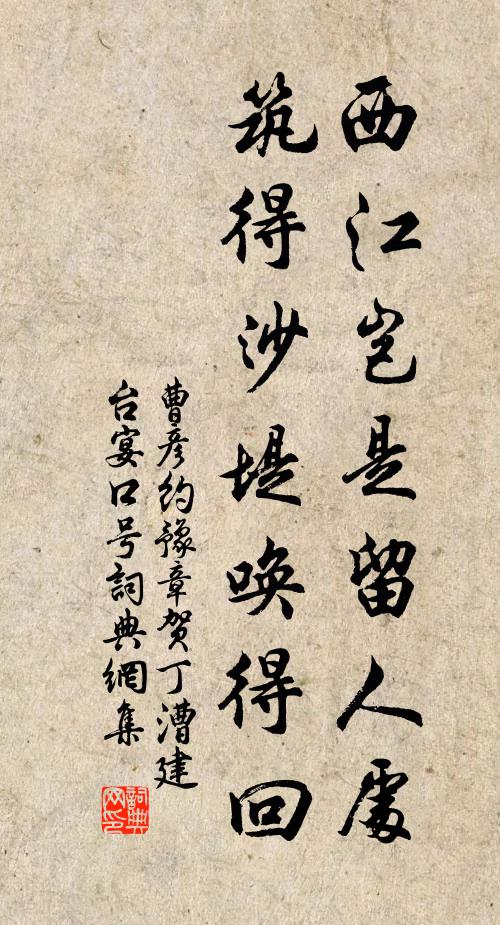 西江豈是留人處
筑得沙堤喚得回
曹彥約豫章賀丁漕建
台宴口号詞典網集
詞典
网印